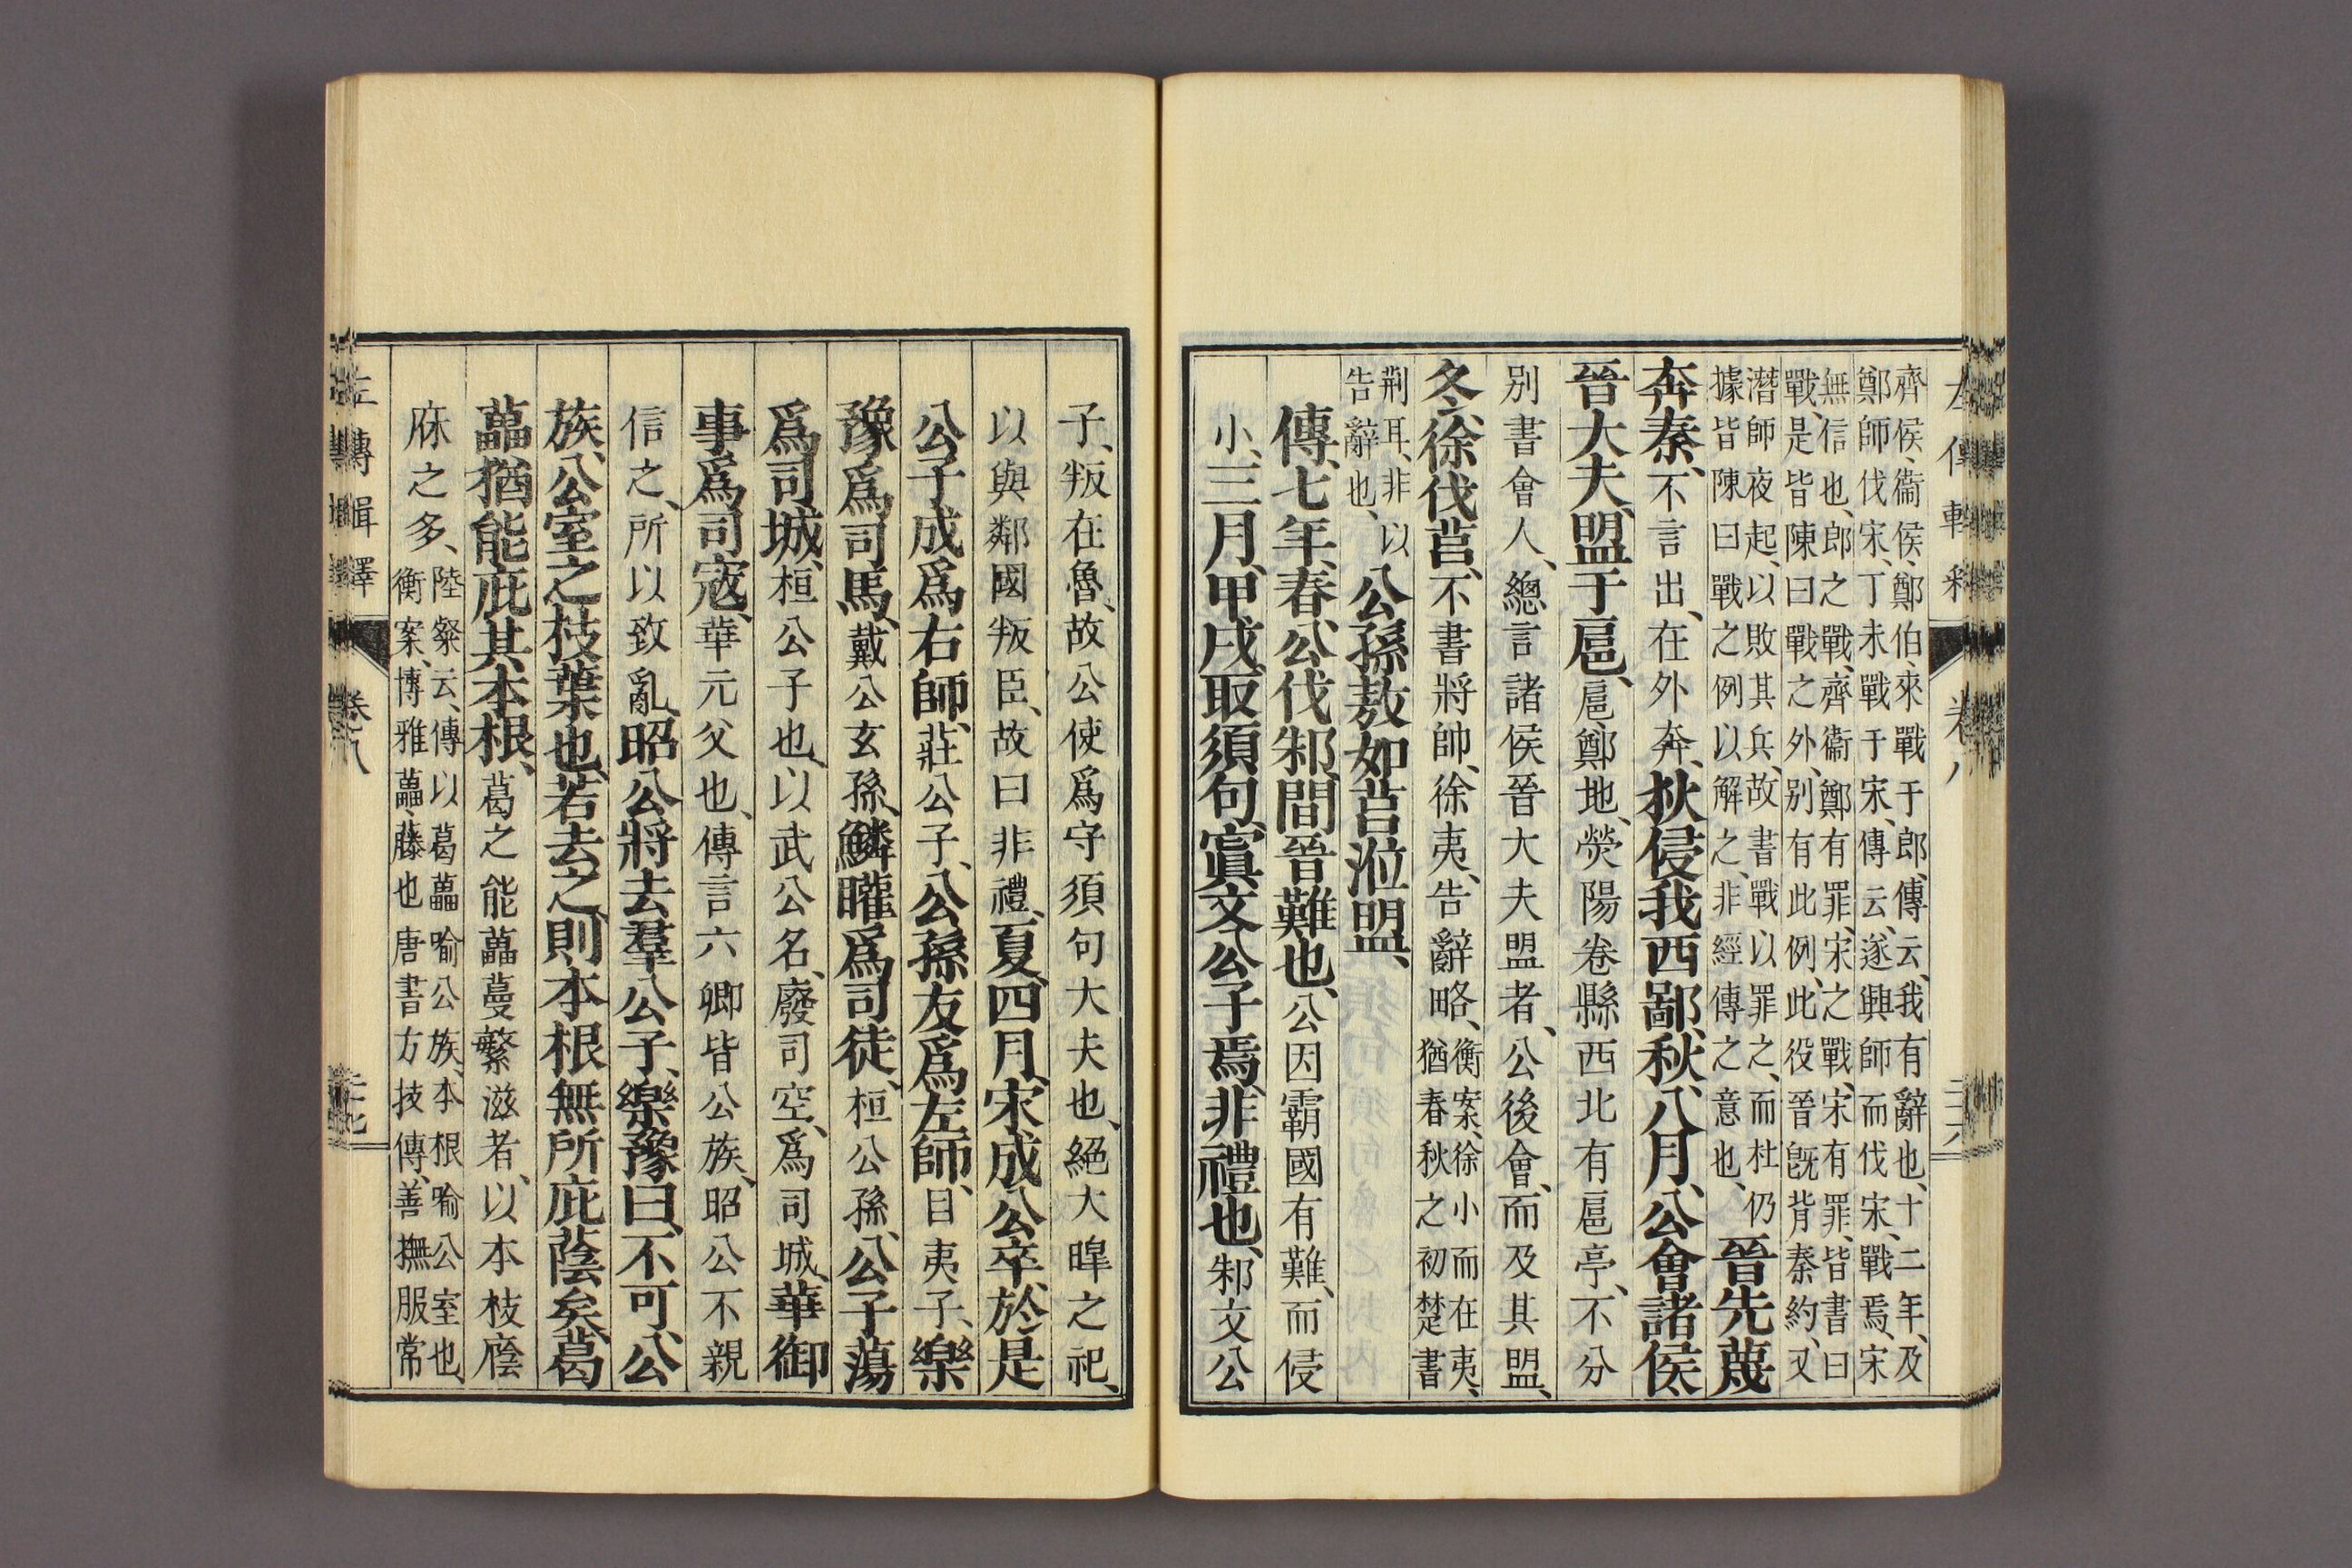 齊侯、衞侯、鄭伯、來戰于郎、傳云、我有辭也、十二年、及
鄭師伐宋、丁未戰于宋、傳云、遂興師而伐宋、戰焉、宋
無信也、郎之戰、齊衞鄭有罪、宋之戰、宋有罪、皆書曰
戰、是皆陳曰戰之外、別有此例、此役晉旣背秦約、又
潛師夜起、以敗其兵、故書戰以罪之、而杜仍
據皆陳曰戰之例以解之、非經傳之意也、
晉先蔑
奔秦、不言出、在外奔、狄侵我西鄙、秋、八月、公會諸侯
晉大夫、盟于扈、扈、鄭地、熒陽卷縣西北有扈亭、不分
別書會人、總言諸侯晉大夫盟者、公後會、而及其盟、
冬、徐伐莒、不書將帥、徐夷、告辭略、衡案、徐小而在夷、
猶春秋之初楚書
荆耳、非以
告辭也、
公孫敖如莒涖盟、
傳、七年、春、公伐邾、間晉難也、公因霸國有難、而侵
小、三月、甲戌、取須句、寘文公子焉、非禮也、邾文公
子、叛在魯、故公使爲守須句大夫也、絕大皥之祀、
以與鄰國叛臣、故曰非禮、夏、四月、宋成公卒、於是
公子成爲右師、莊公子、公孫友爲左師、目夷子、樂
豫爲司馬、戴公玄孫、鱗矔爲司徒、桓公孫、公子蕩
爲司城、桓公子也、以武公名、廢司空、爲司城、華御
事爲司寇、華元父也、傳言六卿皆公族、昭公不親
信之、所以致亂、昭公將去羣公子、樂豫曰、不可、公
族、公室之枝葉也、若去之、則本根無所庇蔭矣、葛
藟猶能庇其本根、葛之能藟蔓繁滋者、以本枝廕
庥之多、陸粲云、傳以葛藟喻公族、本根喻公室也、
衡案、博雅、藟、藤也、唐書方技傳、善撫服常
左傳輯釋
卷八